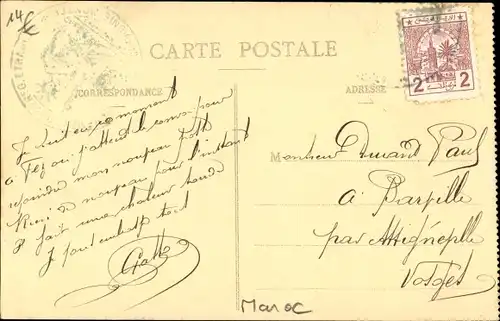 14 €
CARTE POSTALE
CORRESPONDANCE
ADRESSE
2 2
Je suis en ce moment
à Fez où j'attend le convoi pour
rejoindre mon nouveau poste
Rien de nouveau pour l'instant
Il fait une chaleur lourde
Je vous embrasse tous
Monsieur Durand Paul
à Bazoille
par Attignéville
Vosges
Maroc